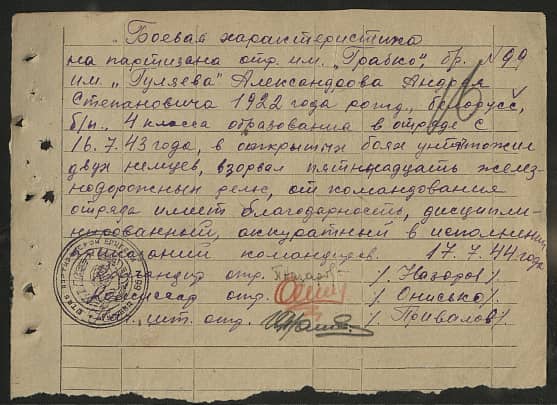 Боевая характеристика
на партизана отр. им. „Грабко", бр. №99
им. „Гуляева" Александрова Андрея
Степановича 1922 года рожд., белорусс,
б/п., 4 класса образования в отряде с
16.7.43 года, в открытых боях уничтожил
двух немцев, взорвал пятнадцать желез-
нодорожных рельс, от командования
отряда имеет благодарность, дисципли-
нированный, аккуратный в исполнении
командиров. 17.7.44 года
отр. /. Назаров/.
Комиссар отр. /. Онисько/.
шт. отр. /. Привалов/.